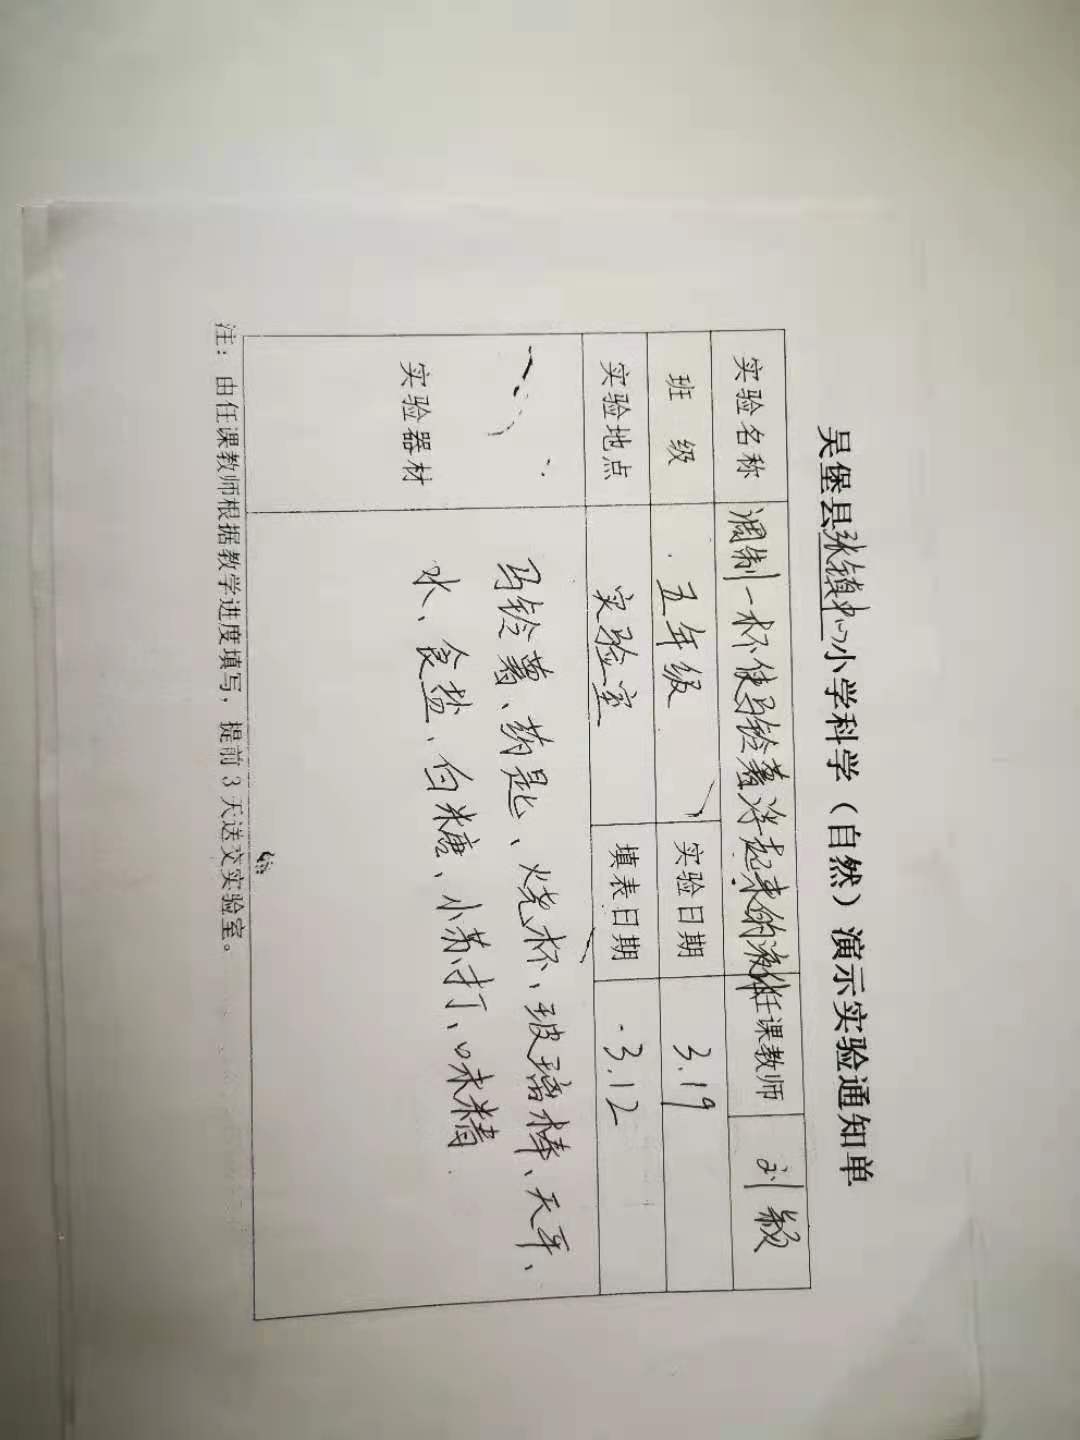 吴堡县张镇中心小学科学（自然）演示实验通知单
实验名称 调制一杯使马铃薯浮起来的液体 任课教师 刘颖
班 级 五年级 实验日期 3.19
实验地点 实验室 填表日期 3.12
实验器材
马铃薯、药匙、烧杯、玻璃棒、天平、
水、食盐、白糖、小苏打、味精
注：由任课教师根据教学进度填写，提前3天送交实验室。